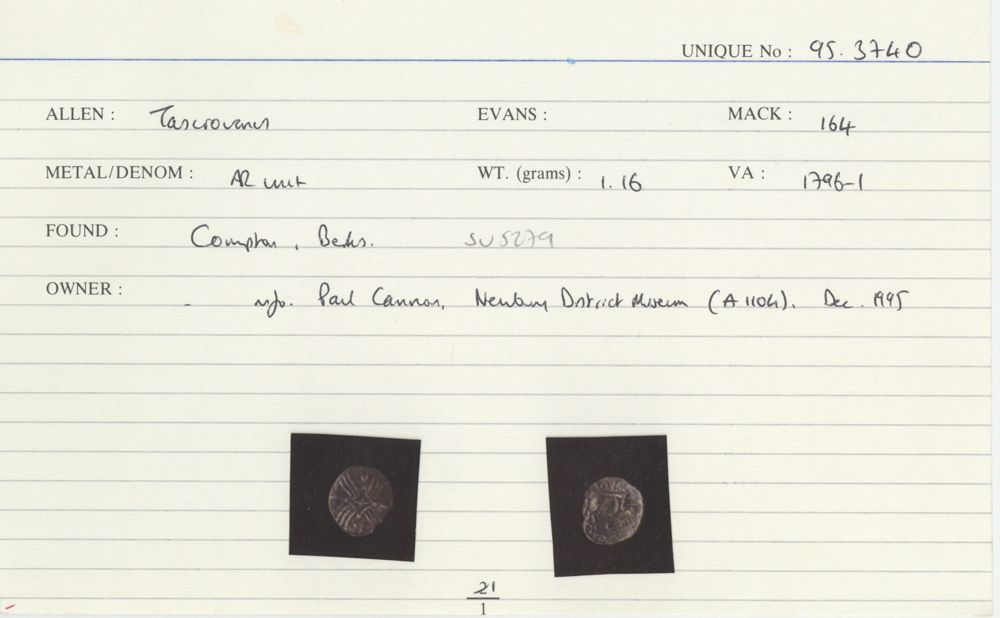 UNIQUE No : 95.3740
ALLEN : Tasciovanus EVANS : MACK : 164
METAL/DENOM : AR unit WT. (grams) : 1.16 VA : 1796-1
FOUND : Compton, Berks. SU5279
OWNER : - info. Paul Cannon, Newbury District Museum (A1104). Dec. 1995
21
1